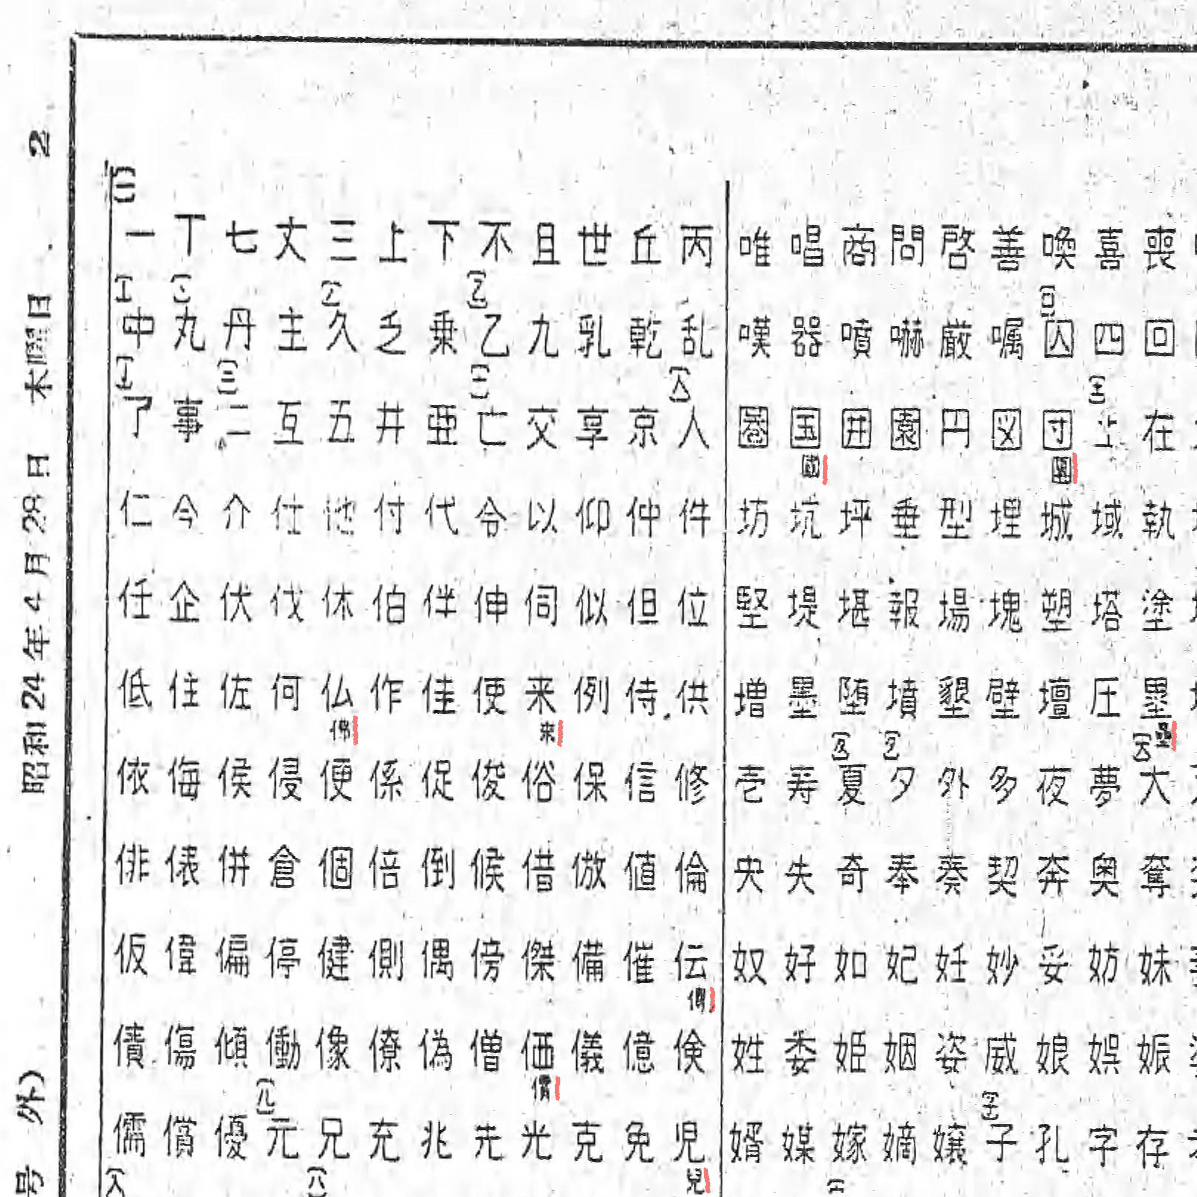 昭和24年4月28日 木曜日 2
号外)
〔一〕
一丁七丈三上下不且世丘丙
〔丨〕〔丶〕〔丿〕〔乙〕
中丸丹主久乏乗乙九乳乾乱
〔亅〕〔二〕〔亠〕〔人〕
了事二互五井亜亡交享京人
仁今介仕他付代令以仰仲件
任企伏伐休伯伴伸伺似但位
低住佐何仏作佳使来例侍供
佛 來
依侮侯侵便係促俊俗保信修
俳俵併倉個倍倒候借倣値倫
仮偉偏停健側偶傍傑備催伝
傳
債傷傾働像僚偽僧価儀億倹
〔儿〕 價
儒償優元兄充兆先光克免児
〔入〕〔八〕 兒
唯唱商問啓善喚喜喪
〔囗〕
嘆器噴嚇厳嘱囚四回
〔土〕
圏国囲園円図団土在
國 團
坊坑坪垂型埋城域執
堅堤堪報場塊塑塔塗
増墨堕墳墾壁壇圧塁
〔夊〕〔夕〕〔大〕壘
壱寿夏夕外多夜夢大
央失奇奉奏契奔奥奪
奴好如妃妊妙妥妨妹
姓委姫姻姿威娘娯娠
〔子〕
婿媒嫁嫡嬢子孔字存